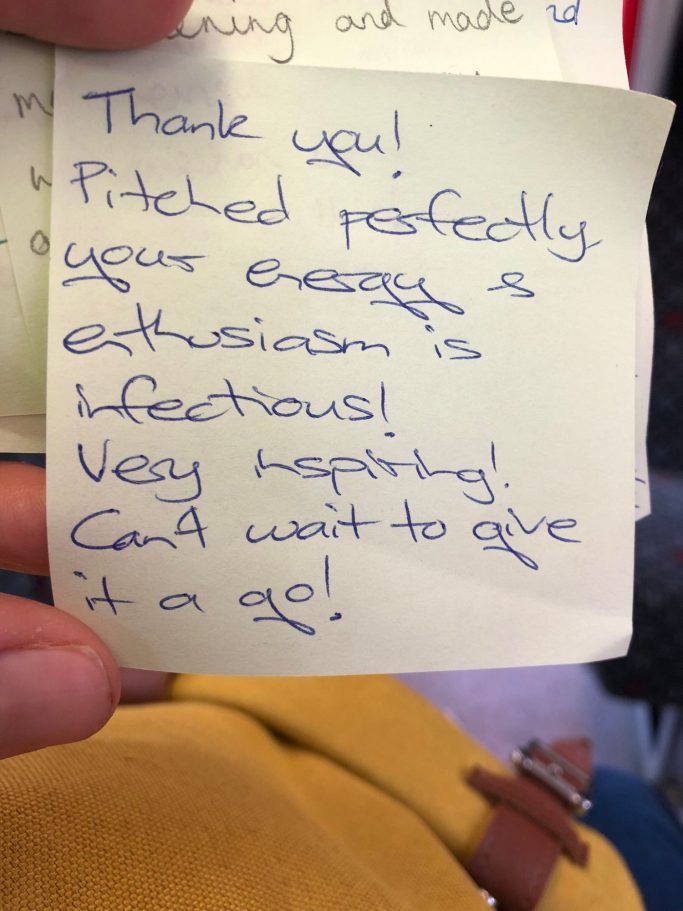 ening and made
Thank you!
Pitched perfectly
your energy &
enthusiasm is
infectious!
Very inspiring!
Can't wait to give
it a go!